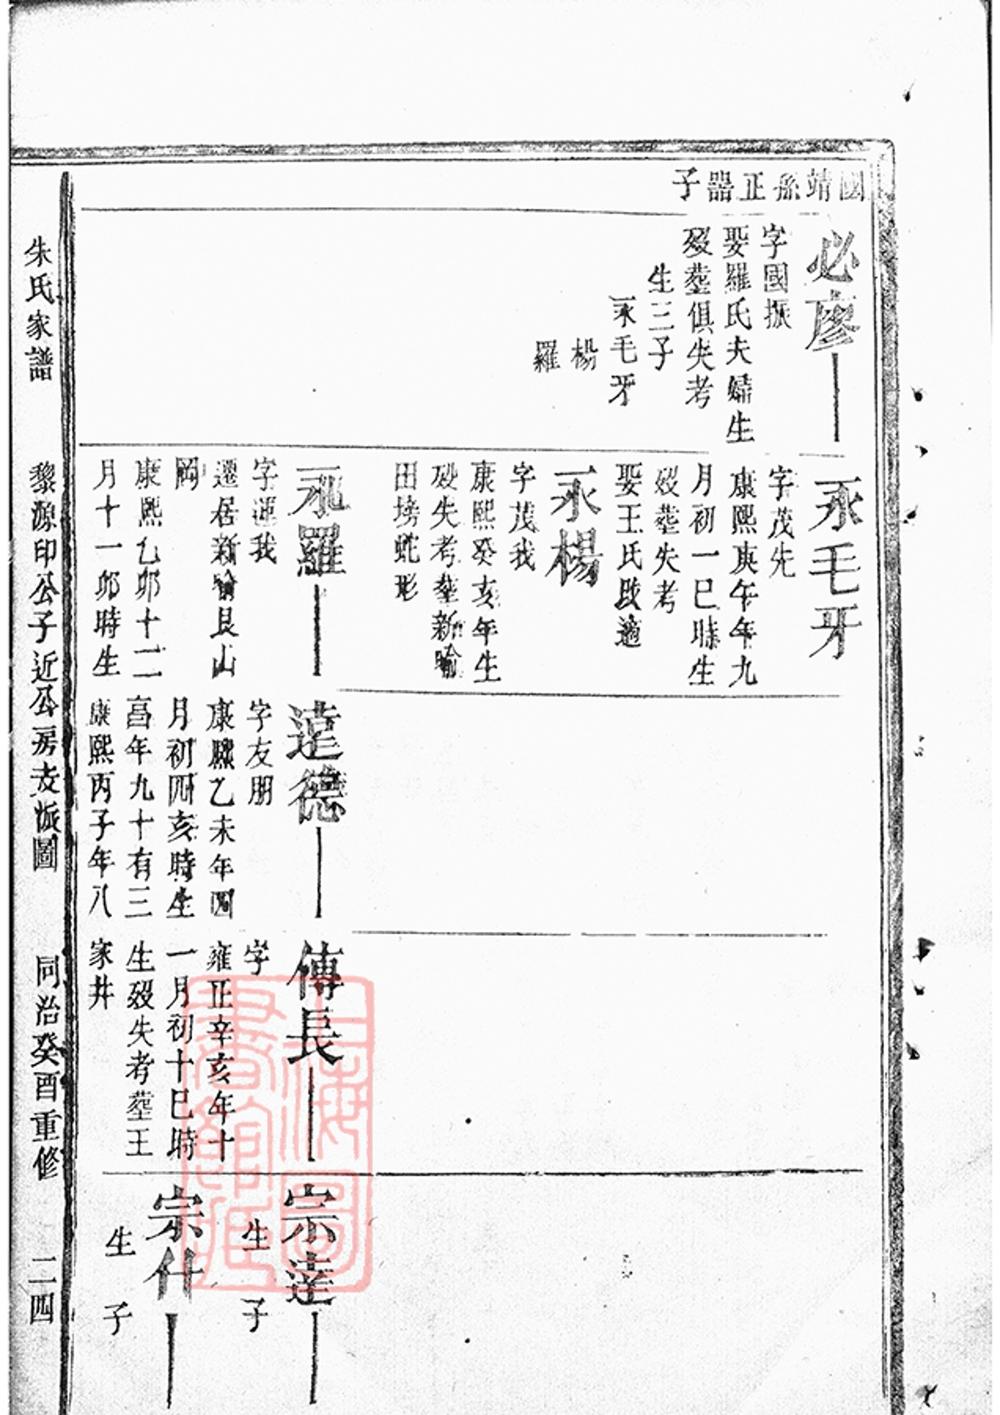 國靖孫正器子
必廖
字國振
娶羅氏夫婦生
歿塟俱失考
生三子
永毛牙
楊
羅
永毛牙
字茂先
康熙庚午年九
月初一巳時生
歿塟失考
娶王氏改適
永楊
字茂我
康熙癸亥年生
歿失考塟新喻
田塝蛇形
永羅
字運我
遷居新喻艮山
岡
康熙乙卯十二
月十一卯時生
達德
字友朋
康熙乙未年四
月初四亥時生
高年九十有三
康熙丙子年八
傳長
字
雍正辛亥年十
一月初十巳時
生歿失考塟王
家井
宗達
生 子
宗什
生 子
朱氏家譜 黎源印公子近公房支派圖 同治癸酉重修 二四
上海圖書館藏